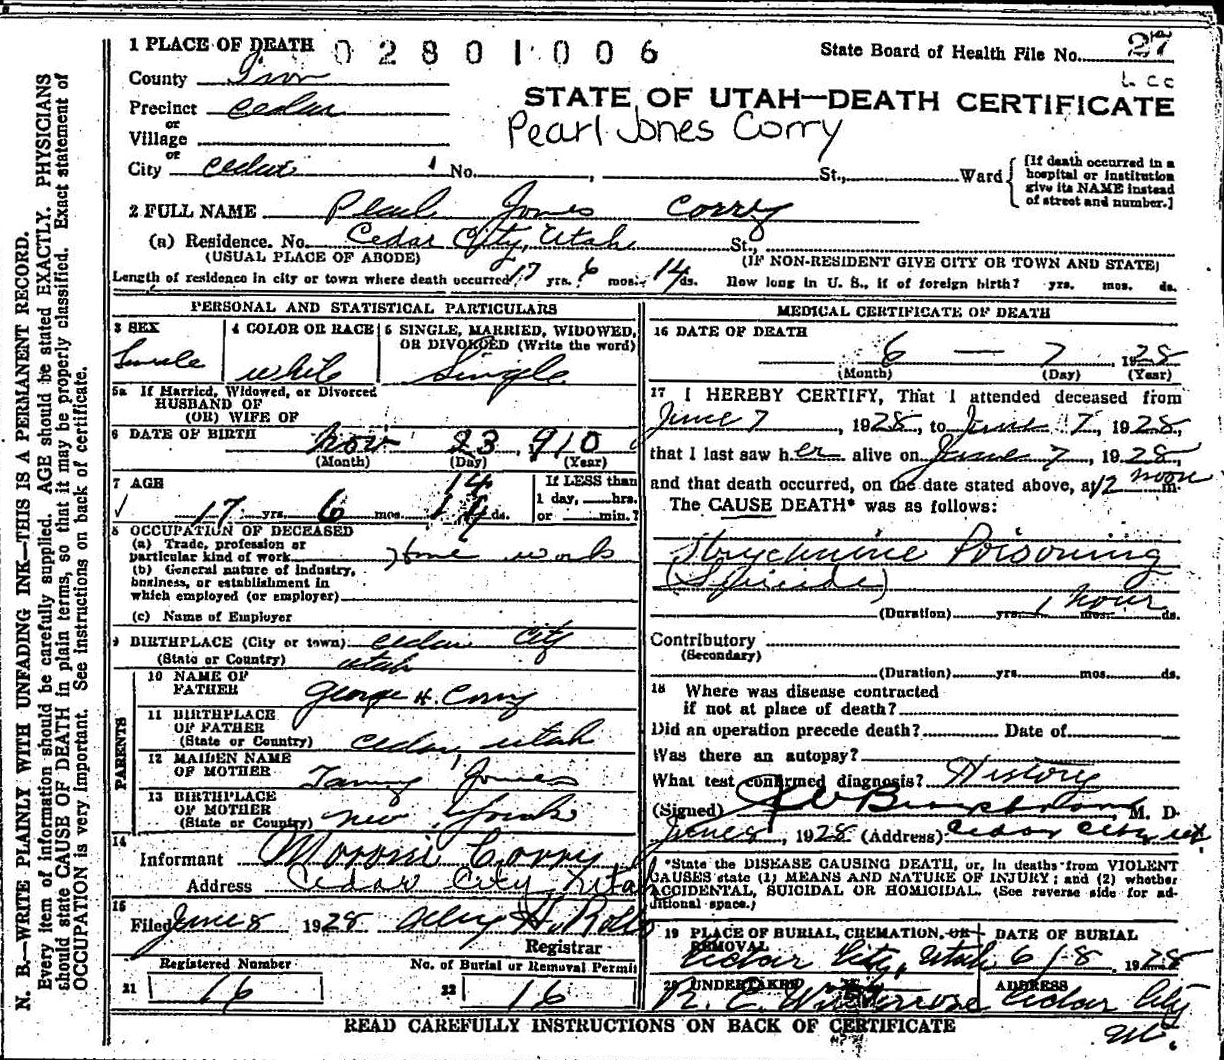 1 PLACE OF DEATH 02801006 State Board of Health File No. 27
County Iron
Precinct Cedar
STATE OF UTAH—DEATH CERTIFICATE
or
Village
Pearl Jones Corry
or
City Cedar No. , St., Ward [If death occurred in a hospital or institution give its NAME instead of street and number.]
2 FULL NAME Pearl Jones Corry
(a) Residence. No. Cedar City, Utah St.,
(USUAL PLACE OF ABODE) (IF NON-RESIDENT GIVE CITY OR TOWN AND STATE)
Length of residence in city or town where death occurred 17 yrs. 6 mos. 14 ds. How long in U. S., if of foreign birth? yrs. mos. ds.
PERSONAL AND STATISTICAL PARTICULARS
3 SEX 4 COLOR OR RACE 5 SINGLE, MARRIED, WIDOWED,
OR DIVORCED (Write the word)
Female White Single
5a If Married, Widowed, or Divorced
HUSBAND OF
(OR) WIFE OF
6 DATE OF BIRTH Nov 23 910
(Month) (Day) (Year)
7 AGE 14 If LESS than
17 yrs. 6 mos. 14 ds. 1 day, hrs.
or min.?
8 OCCUPATION OF DECEASED
(a) Trade, profession or
particular kind of work Home work
(b) General nature of industry,
business, or establishment in
which employed (or employer)
(c) Name of Employer
9 BIRTHPLACE (City or town) Cedar City
(State or Country) Utah
PARENTS
10 NAME OF
FATHER George H. Corry
11 BIRTHPLACE
OF FATHER
(State or Country) Cedar, Utah
12 MAIDEN NAME
OF MOTHER Jones
13 BIRTHPLACE
OF MOTHER
(State or Country) New York
14
Informant Moroni Corry
Address Cedar City Utah
15
Filed June 8 1928 H. Rollo
Registrar
Registered Number No. of Burial or Removal Permit
21 16 22 16
MEDICAL CERTIFICATE OF DEATH
16 DATE OF DEATH
6 — 7 1928
(Month) (Day) (Year)
17 I HEREBY CERTIFY, That I attended deceased from
June 7, 1928, to June 7, 1928,
that I last saw her alive on June 7, 1928,
and that death occurred, on the date stated above, at 12 noon m.
The CAUSE DEATH* was as follows:
Strychnine Poisoning
(Suicide)
(Duration) yrs. 1 hour mos. ds.
Contributory
(Secondary)
(Duration) yrs. mos. ds.
18 Where was disease contracted
if not at place of death?
Did an operation precede death? Date of
Was there an autopsy?
What test confirmed diagnosis? History
(Signed) M. D.
June 8, 1928 (Address) Cedar City Ut
*State the DISEASE CAUSING DEATH, or, in deaths from VIOLENT
CAUSES state (1) MEANS AND NATURE OF INJURY; and (2) whether
ACCIDENTAL, SUICIDAL OR HOMICIDAL. (See reverse side for ad-
ditional space.)
19 PLACE OF BURIAL, CREMATION, OR REMOVAL DATE OF BURIAL
Cedar City, Utah 6/8, 1928
20 UNDERTAKER ADDRESS
Cedar City
Ut.
READ CAREFULLY INSTRUCTIONS ON BACK OF CERTIFICATE
N. B.—WRITE PLAINLY WITH UNFADING INK—THIS IS A PERMANENT RECORD.
Every item of information should be carefully supplied. AGE should be stated EXACTLY. PHYSICIANS
should state CAUSE OF DEATH in plain terms, so that it may be properly classified. Exact statement of
OCCUPATION is very important. See instructions on back of certificate.